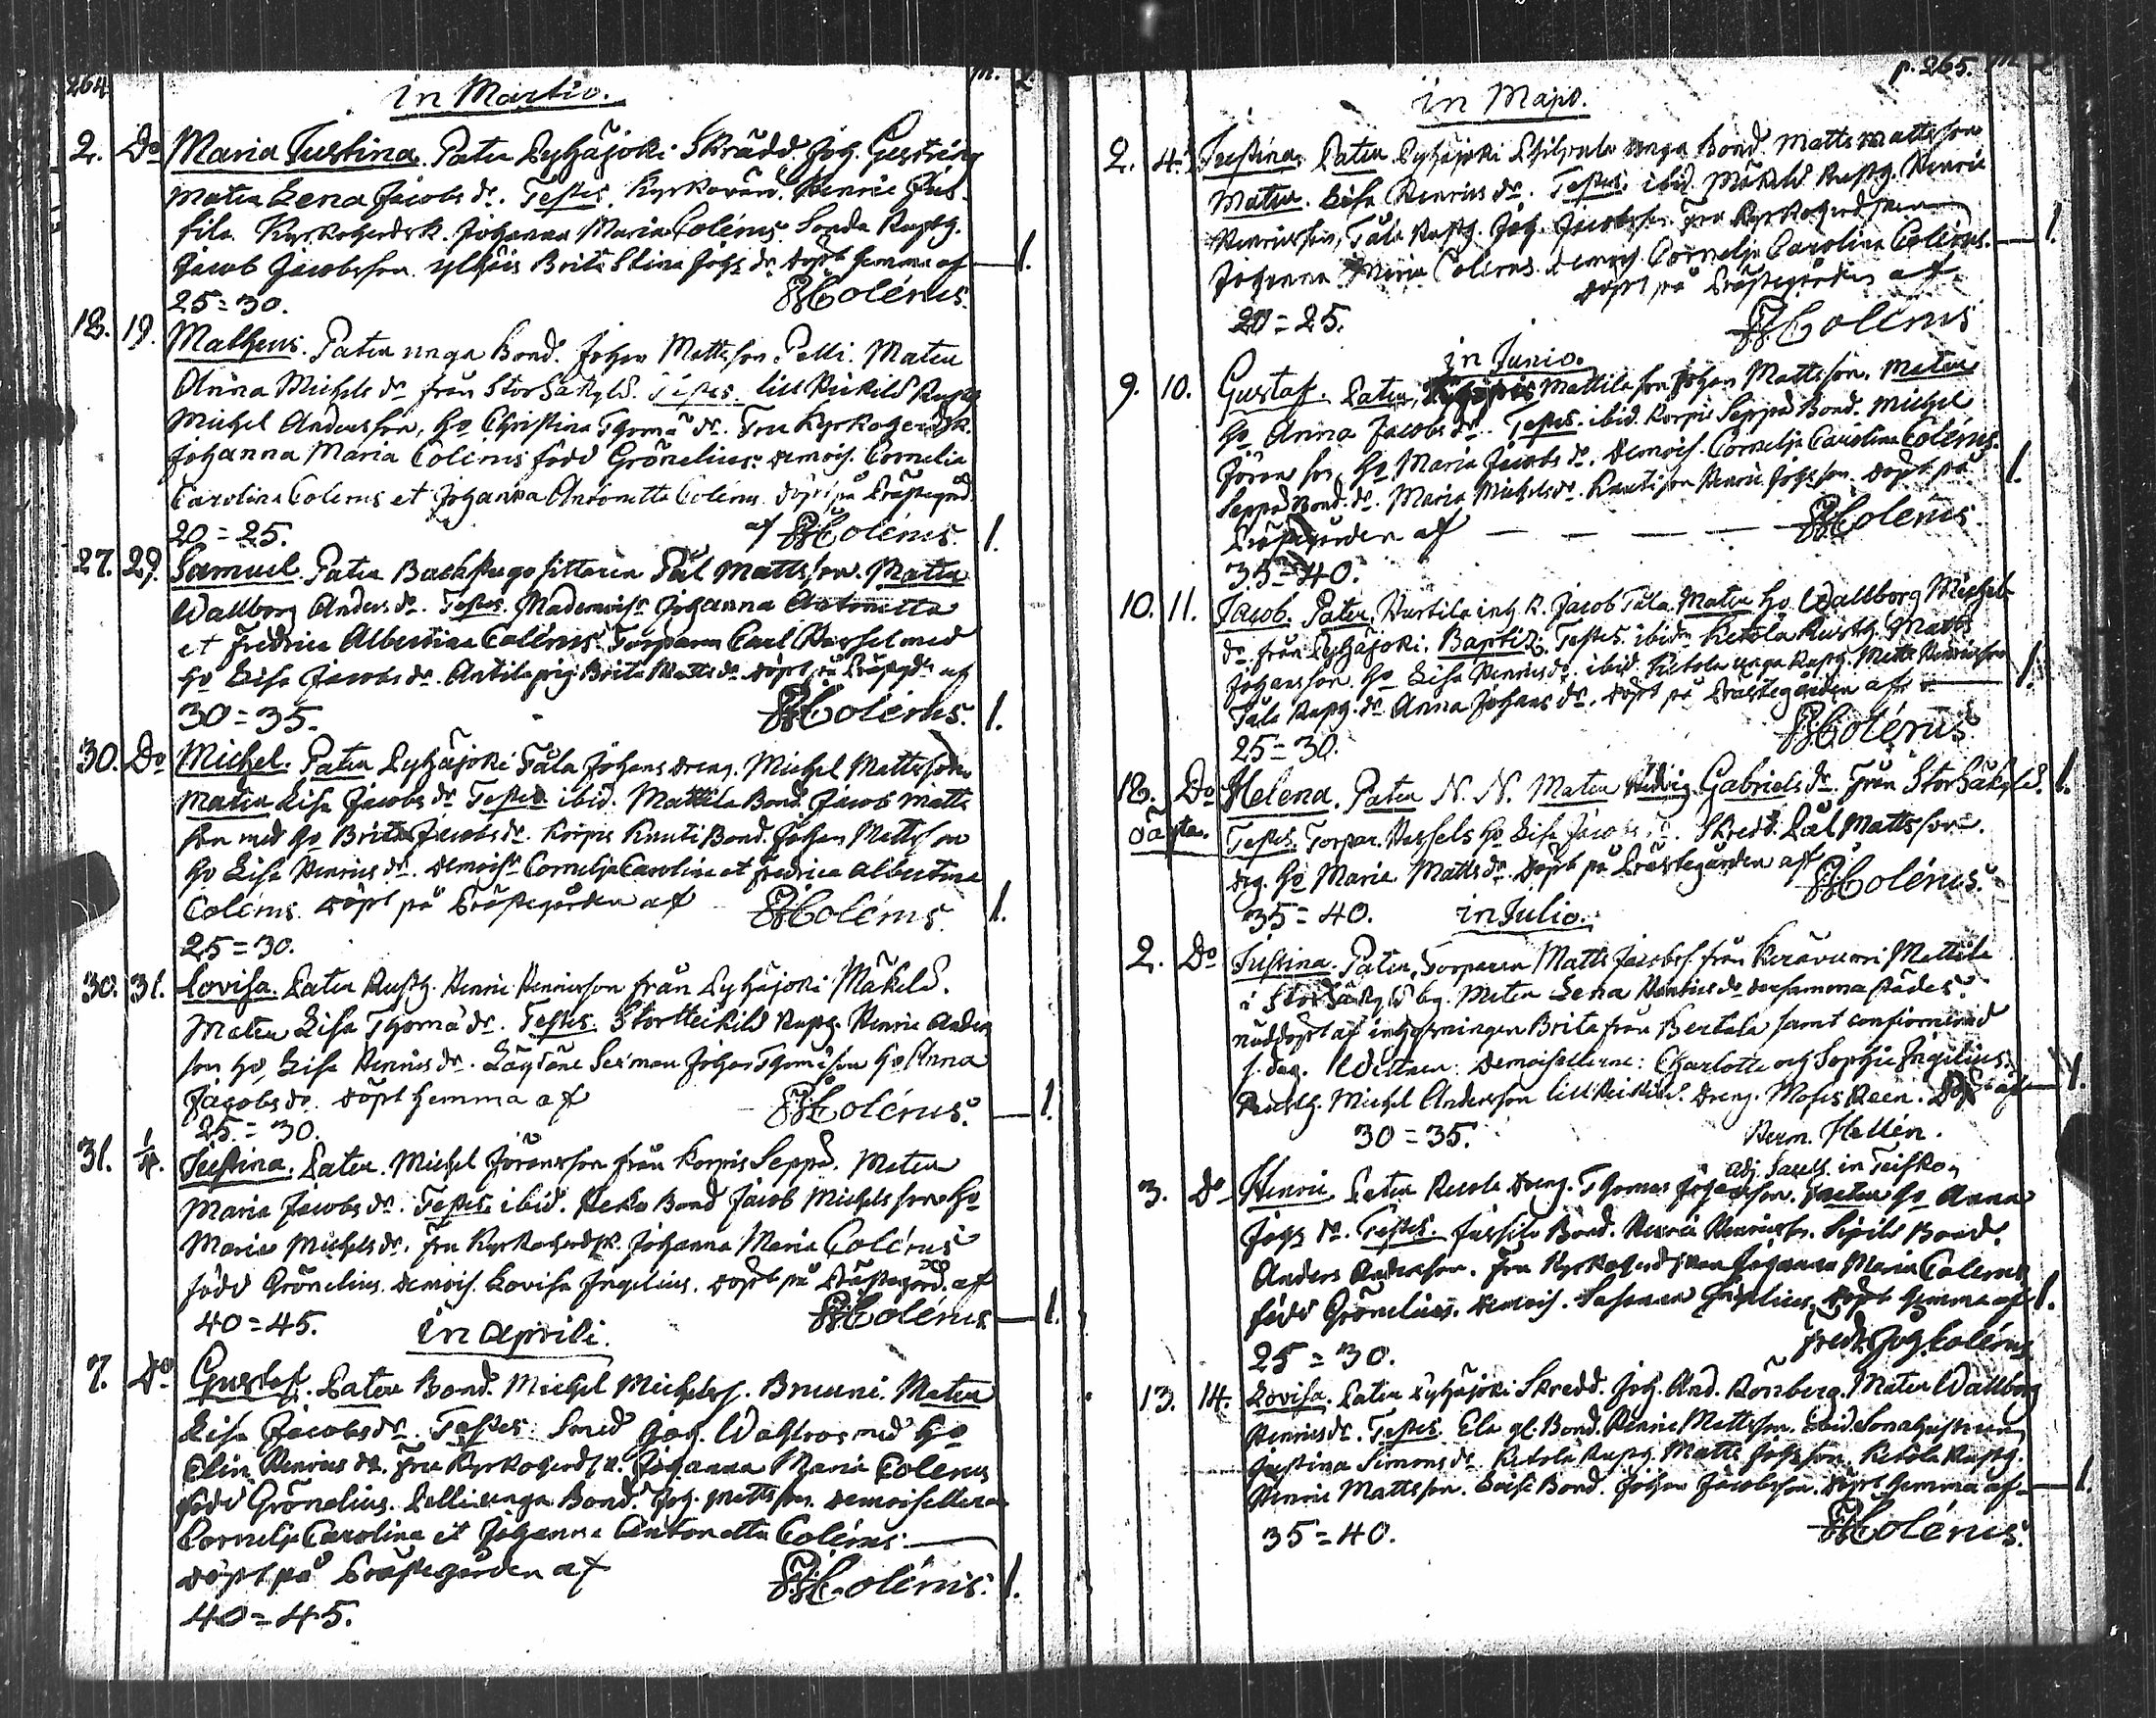 264
in Martio.
m. q.
2. Do Maria Justina. Pater Pyhäjoki Skrädd. Joh. Gestring
Mater Lena Jacobs dr. Testes. Kyrkovärd. Henric Jus-
sila. Kyrkoherdsk. Johanna Maria Colérus. Sonda Rusth.
Jacob Jacobsson. Ylhäis Brita Stina Johs dr. döpt hemma af 1.
25=30. FHColérus.
18. 19. Matheus. Pater unga Bond. Johan Mattsson Pelli. Mater
Anna Michels dr från StorSäkylä. Testes. Rusth.
Michel Andersson, ho Christina Thomæ dr. Fru Kyrkoherdsk.
Johanna Maria Colérus född Grönelius. Demois. Cornelia
Carolina Colérus et Johanna Antonetta Colérus. döpt på Prästegård
20=25. af FHColérus. 1.
27. 29. Samuel. Pater Backstugosittaren Pål Mattsson. Mater
Wallborg Anders dr. Testes. Mademois. Johanna Antonetta
et Fredrica Albertina Colérus. Torparen Carl Hassel med
ho Lisa Jacobs dr. Antila pig. Brita Matts dr. döpt på Prästgdn af
30=35. FHColérus. 1.
30. Do Michel. Pater Pyhäjoki Tåla Johans dreng. Michel Mattsson.
Mater Lisa Jacobs dr Testes ibid. Mattila Bond. Jacob Matts
son med ho Brita Jacobs dr. Korpis Knuti Bond. Johan Mattsson
ho Lisa Henrics dr. Demois. Cornelja Carolina et Fredrica Albertina
Colérus. döpt på Prästegården af FHColérus. 1.
25=30.
30. 31. Lovisa. Pater Rusth. Henric Henricsson från Pyhäjoki Mäkelä.
Mater Lisa Thomæ dr. Testes. Rusth. Henric Anders
son ho, Lisa Henrics dr. Sexman Johan Thomæson ho Anna
Jacobs dr. döpt hemma af FHColérus. 1.
25=30.
31. 1/4. Justina. Pater. Michel Jöransson från Korpis Seppä. Mater
Maria Jacobs dr. Testes. ibid. Heko Bond Jacob Michelsson ho
Maria Michels dr. Fru Kyrkoherdsk. Johanna Maria Colérus
född Grönelius. Demois. Lovisa Ingelius. döpt på Prästegård. af
40=45. FHColérus. 1.
in Aprili.
7. Do Gustaf. Pater Bond. Michel Michelss. Bruuni. Mater
Lisa Jacobs dr. Testes. Smed Joh. Wahlroos med ho
Elin Henrics dr. Fru Kyrkoherdsk. Johanna Maria Colérus
född Grönelius. Pelli unga Bond. Joh. Mattsson. Demoisellerne
Cornelja Carolina et Johanna Antonetta Colérus.
döpt på Prästegården af FHColérus. 1.
40=45.
p. 265.
in Majo.
2. 4. Justina. Pater Pyhäjoki unga Bond. Matts Mattsson
Mater. Lisa Henrics dr. Testes. ibid. Mäkelä Rusth. Henric
Henricsson, Tåla Rusth. Joh. Jacobsson. Fru Kyrkoherdskan
Johanna Maria Colérus. demois. Cornelja Carolina Colérus. 1.
döpt på Prästegården af
20=25. FHColérus
in Junio.
9. 10. Gustaf. Pater, Mattila son Johan Mattsson. Mater
ho Anna Jacobs dr. Testes. ibid. Korpis Seppä Bond. Michel
Jöransson, ho Maria Jacobs dr. Demois. Cornelja Carolina Colérus.
Seppä Bond. dr. Maria Michels dr. Knuti son Henric Johsson. döpt på 1.
Prästgården af FHColérus
35=40.
10. 11. Jacob. Pater, Hurtila inh. K. Jacob Tåla. Mater ho Wallborg Michels
dr. från Pyhäjoki. Baptiz. Testes. ibidm Ketola Rusth. Matts
Johansson. ho Lisa Henrics dr. ibid. Ketola unga Rusth. Matts Henricsson 1.
Tåla Rusth. dr Anna Johans dr. döpt på Prästegården af
25=30. FHColérus
18. Do Helena. Pater N. N. Mater Hedvig Gabriels dr. från StorSäkylä. 1.
oäkta. Testes. Torpar. Hassels ho Lisa Jacobs dr. Skredd. Pål Mattsson.
drg. ho Maria Matts dr. döpt på Prästegården af FHColérus.
35=40. in Julio.
2. Do Justina. Pater, Torparen Matts Jacobss. från Keravuori Mattila
i StorSäkylä by. Mater Lena Henrics dr dersamma städes.
nöddöpt af inhysningen Brita från Bertala samt confirmerad
s. dag. Wittnen: Demoisellerne: Charlotte och Sophie Ingelius.
Rusth. Michel Andersson Dreng. Moses Reen. Döpt af 1.
30=35. Herm. Hellén.
adj. Sacell. in Teisko,
3. Do Henric. Pater dreng. Thomas Johansson. Mater ho Anna
Johs dr. Testes. Jussila Bond. Henric Henricss. Sipilä Bond.
Anders Andersson. Fru Kyrkoherdskan Johanna Maria Colérus
född Grönelius. Demois. Susanna Ingelius. döpt hemma af 1.
25=30. Fredr. Joh. Colérus
13. 14. Lovisa. Pater Pyhäjoki Skredd. Joh. And. Rönberg. Mater Wallborg
Henrics dr. Testes. Ela gl. Bond. Henric Mattsson. ibid. Sonahustrun
Justina Simons dr. Ketola Rusth. Matts Johsson. Ketola Rusth.
Henric Mattsson. Bond. Johan Jacobsson. döpt hemma af 1.
35=40. FHColérus.